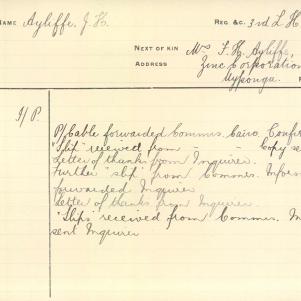 NAME Ayliffe, J. H. REG &C. 3rd L. H
NEXT OF KIN Mrs F. H. Ayliffe,
ADDRESS Zinc Corporation
Myponga.
I/P.
P/Cable forwarded Commrs. Cairo. Confir
"Slip" received from - - Copy se
Letter of thanks from Inquirer.
Further "slip" from Commrs. Infor
forwarded Inquirer
Letter of thanks from Inquirer.
"Slips" received from Commrs. In
sent Inquirer